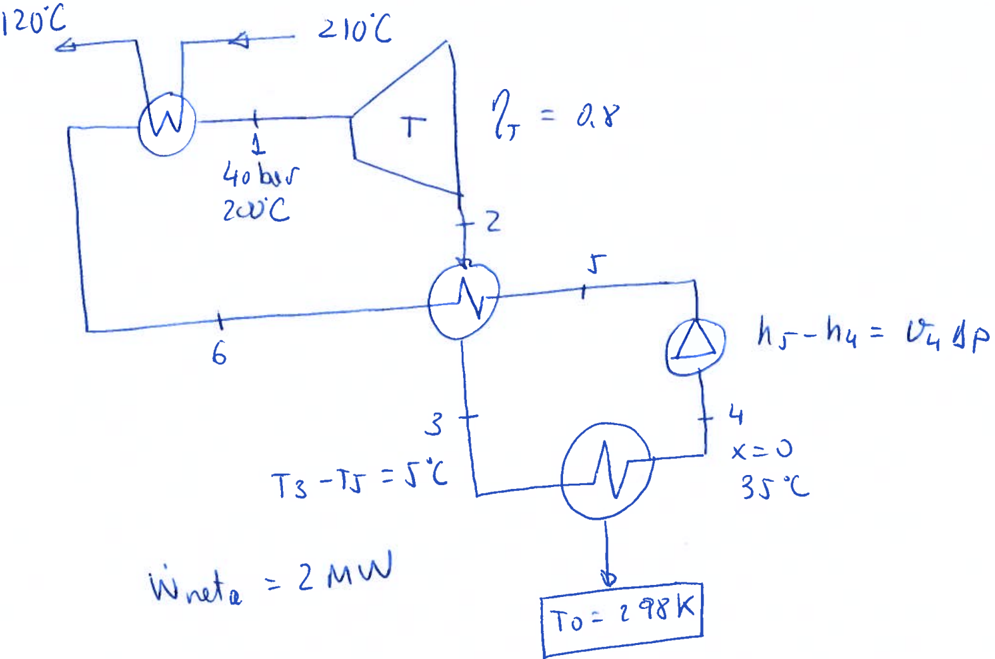 120°C
210°C
T
η_T = 0.8
1
40 bar
200°C
2
5
6
h5 - h4 = v4 Δp
3
4
x = 0
35°C
T3 - T5 = 5°C
Ẇneta = 2 MW
T0 = 298K